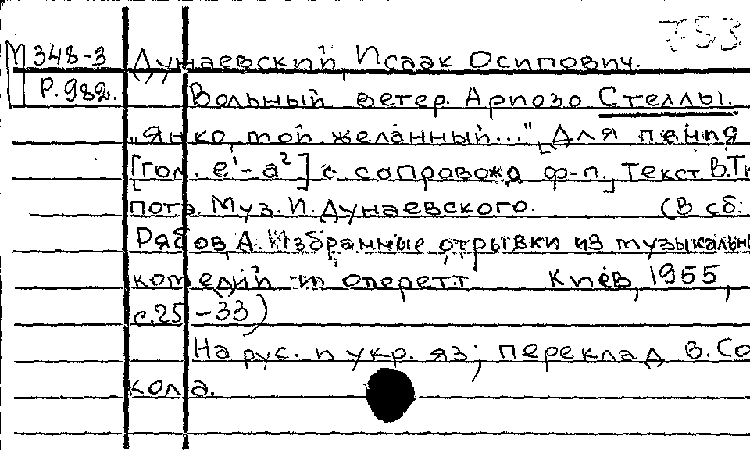 753
М 348-3
Р.982.
Дунаевский, Исаак Осипович.
Вольный ветер. Ариозо Стеллы.
"Янко, мой желанный..." [Для пения
[гол. e¹-a²] с сопровожд. ф-п.] Текст В.Ти
пота. Муз. И. Дунаевского. (В сб:
Рябов, А. Избранные отрывки из музыкальн
комедий и оперетт. Киев, 1955,
с.25-33)
На рус. и укр. яз; переклад В. Со
кола.